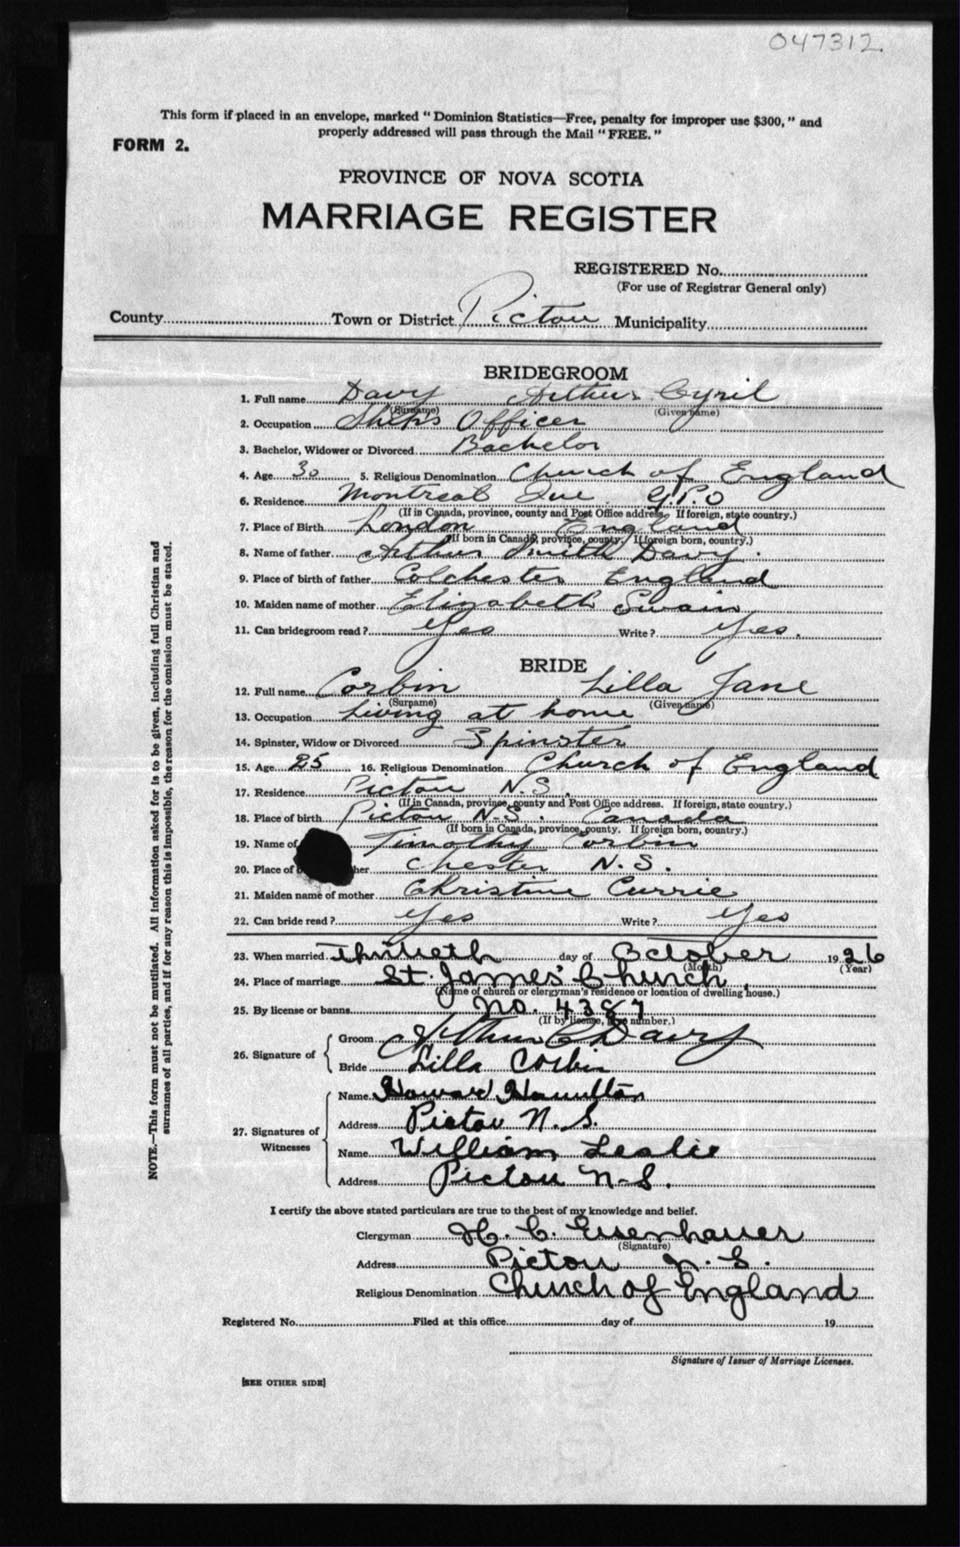 047312.
This form if placed in an envelope, marked "Dominion Statistics—Free, penalty for improper use $300," and
properly addressed will pass through the Mail "FREE."
FORM 2.
PROVINCE OF NOVA SCOTIA
MARRIAGE REGISTER
REGISTERED No.
(For use of Registrar General only)
County Town or District Pictou Municipality
BRIDEGROOM
1. Full name Davy Arthur Cyril
(Surname) (Given name)
2. Occupation Ship's Officer
3. Bachelor, Widower or Divorced Bachelor
4. Age 30 5. Religious Denomination Church of England
6. Residence Montreal Que G.P.O
(If in Canada, province, county and Post Office address. If foreign, state country.)
7. Place of Birth London England
(If born in Canada, province, county. If foreign born, country.)
8. Name of father Arthur Smith Davy.
9. Place of birth of father Colchester England
10. Maiden name of mother Elizabeth Swain
11. Can bridegroom read? Yes Write? Yes.
BRIDE
12. Full name Corbin Lilla Jane
(Surname) (Given name)
13. Occupation Living at home
14. Spinster, Widow or Divorced Spinster
15. Age 25 16. Religious Denomination Church of England
17. Residence Pictou N.S.
(If in Canada, province, county and Post Office address. If foreign, state country.)
18. Place of birth Pictou N.S. Canada
(If born in Canada, province, county. If foreign born, country.)
19. Name of Timothy Corbin
20. Place of her Chester N.S.
21. Maiden name of mother Christine Currie
22. Can bride read? Yes Write? Yes
23. When married Thirtieth day of October 1926
(Month) (Year)
24. Place of marriage St. James' Church.
(Name of church or clergyman's residence or location of dwelling house.)
25. By license or banns No. 4387
(If by license, give number.)
26. Signature of
Groom Arthur C Davy
Bride Lilla Corbin
27. Signatures of Witnesses
Name Howard Hamilton
Address Pictou N.S.
Name William Leslie
Address Pictou N.S.
I certify the above stated particulars are true to the best of my knowledge and belief.
Clergyman H. C. Eisenhauer
(Signature)
Address Pictou N.S.
Religious Denomination Church of England
Registered No. Filed at this office day of 19
Signature of Issuer of Marriage Licenses.
[SEE OTHER SIDE]
NOTE.—This form must not be mutilated. All information asked for is to be given, including full Christian and
surnames of all parties, and if for any reason this is impossible, the reason for the omission must be stated.